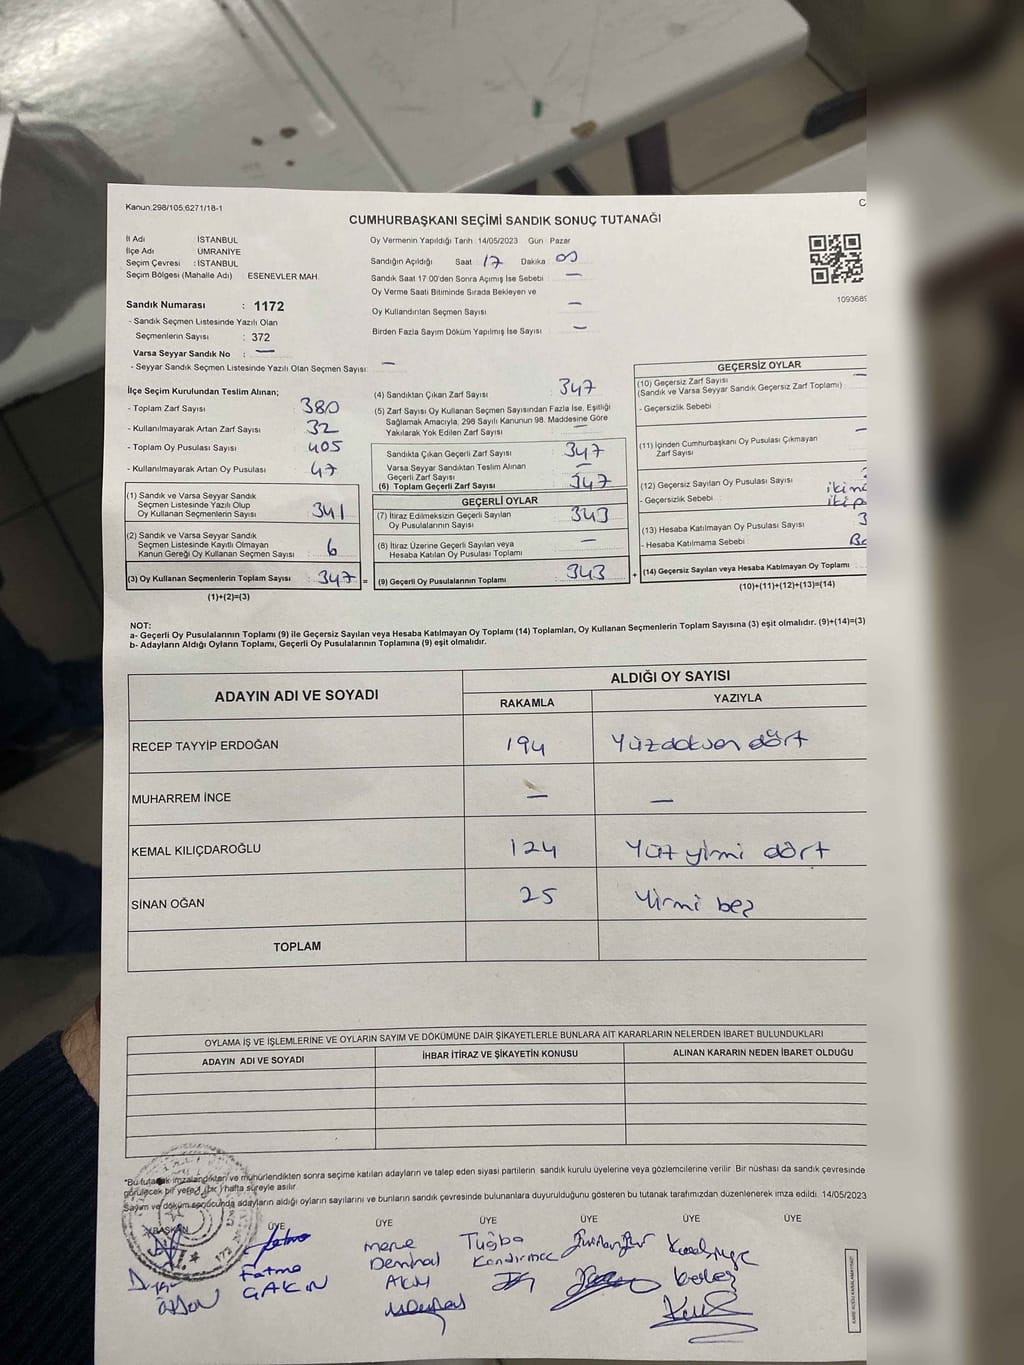 Kanun:298/105;6271/18-1
CUMHURBAŞKANI SEÇİMİ SANDIK SONUÇ TUTANAĞI
İl Adı İSTANBUL
İlçe Adı ÜMRANİYE
Seçim Çevresi : İSTANBUL
Seçim Bölgesi (Mahalle Adı) ESENEVLER MAH.
Sandık Numarası : 1172
- Sandık Seçmen Listesinde Yazılı Olan
Seçmenlerin Sayısı : 372
Varsa Seyyar Sandık No : —
- Seyyar Sandık Seçmen Listesinde Yazılı Olan Seçmen Sayısı: —
Oy Vermenin Yapıldığı Tarih :14/05/2023 Gün : Pazar
Sandığın Açıldığı Saat 17 Dakika
Sandık Saat 17:00'den Sonra Açımış İse Sebebi : —
Oy Verme Saati Bitiminde Sırada Bekleyen ve
Oy Kullandırılan Seçmen Sayısı : —
Birden Fazla Sayım Döküm Yapılmış İse Sayısı : —
109368
İlçe Seçim Kurulundan Teslim Alınan;
- Toplam Zarf Sayısı 380
- Kullanılmayarak Artan Zarf Sayısı 32
- Toplam Oy Pusulası Sayısı 405
- Kullanılmayarak Artan Oy Pusulası 47
(1) Sandık ve Varsa Seyyar Sandık
Seçmen Listesinde Yazılı Olup
Oy Kullanan Seçmenlerin Sayısı 341
(2) Sandık ve Varsa Seyyar Sandık
Seçmen Listesinde Kayıtlı Olmayan
Kanun Gereği Oy Kullanan Seçmen Sayısı 6
(3) Oy Kullanan Seçmenlerin Toplam Sayısı 347 =
(1)+(2)=(3)
(4) Sandıktan Çıkan Zarf Sayısı 347
(5) Zarf Sayısı Oy Kullanan Seçmen Sayısından Fazla İse, Eşitliği
Sağlamak Amacıyla, 298 Sayılı Kanunun 98. Maddesine Göre
Yakılarak Yok Edilen Zarf Sayısı —
Sandıkta Çıkan Geçerli Zarf Sayısı 347
Varsa Seyyar Sandıktan Teslim Alınan
Geçerli Zarf Sayısı —
(6) Toplam Geçerli Zarf Sayısı 347
GEÇERLİ OYLAR
(7) İtiraz Edilmeksizin Geçerli Sayılan
Oy Pusulalarının Sayısı 343
(8) İtiraz Üzerine Geçerli Sayılan veya
Hesaba Katılan Oy Pusulası Toplamı —
(9) Geçerli Oy Pusulalarının Toplamı 343 +
GEÇERSİZ OYLAR
(10) Geçersiz Zarf Sayısı —
(Sandık ve Varsa Seyyar Sandık Geçersiz Zarf Toplamı)
- Geçersizlik Sebebi :
(11) İçinden Cumhurbaşkanı Oy Pusulası Çıkmayan —
Zarf Sayısı
(12) Geçersiz Sayılan Oy Pusulası Sayısı
- Geçersizlik Sebebi :
(13) Hesaba Katılmayan Oy Pusulası Sayısı 3
- Hesaba Katılmama Sebebi :
(14) Geçersiz Sayılan veya Hesaba Katılmayan Oy Toplamı
(10)+(11)+(12)+(13)=(14)
NOT:
a- Geçerli Oy Pusulalarının Toplamı (9) ile Geçersiz Sayılan veya Hesaba Katılmayan Oy Toplamı (14) Toplamları, Oy Kullanan Seçmenlerin Toplam Sayısına (3) eşit olmalıdır. (9)+(14)=(3)
b- Adayların Aldığı Oyların Toplamı, Geçerli Oy Pusulalarının Toplamına (9) eşit olmalıdır.
ADAYIN ADI VE SOYADI ALDIĞI OY SAYISI
RAKAMLA YAZIYLA
RECEP TAYYİP ERDOĞAN 194 Yüzdoksan dört
MUHARREM İNCE — —
KEMAL KILIÇDAROĞLU 124 Yüz yirmi dört
SİNAN OĞAN 25 Yirmi beş
TOPLAM
OYLAMA İŞ VE İŞLEMLERİNE VE OYLARIN SAYIM VE DÖKÜMÜNE DAİR ŞİKAYETLERLE BUNLARA AİT KARARLARIN NELERDEN İBARET BULUNDUKLARI
ADAYIN ADI VE SOYADI İHBAR İTİRAZ VE ŞİKAYETİN KONUSU ALINAN KARARIN NEDEN İBARET OLDUĞU
"Bu tutanak imzalandıktan ve mühürlendikten sonra seçime katılan adayların ve talep eden siyasi partilerin sandık kurulu üyelerine veya gözlemcilerine verilir. Bir nüshası da sandık çevresinde
görülecek bir yerde (bir) hafta süreyle asılır
Sayım ve döküm sonucunda adayların aldığı oyların sayılarını ve bunların sandık çevresinde bulunanlara duyurulduğunu gösteren bu tutanak tarafımızdan düzenlenerek imza edildi. 14/05/2023
BAŞKAN ÜYE ÜYE ÜYE ÜYE ÜYE ÜYE
Fatma
Merve
Tuğba